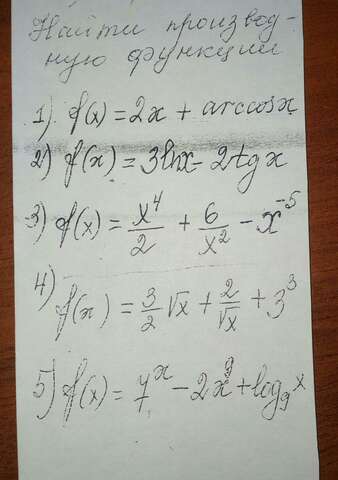 Найти производ-
ную функции
1) f(x) = 2x + arccosx
2) f(x) = 3lnx - 2tgx
3) f(x) = x⁴/2 + 6/x² - x⁻⁵
4) f(x) = 3/2 √x + 2/√x + 3³
5) f(x) = 7ˣ - 2x⁹ + log₉x